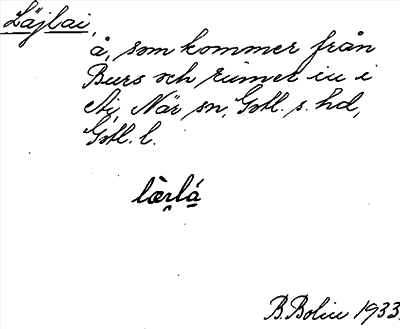 Läjlai,
å, som kommer från
Burs och rinner in i
Ai, När sn, Gotl. s. hd,
Gotl. l.
B. Bolin 1933.